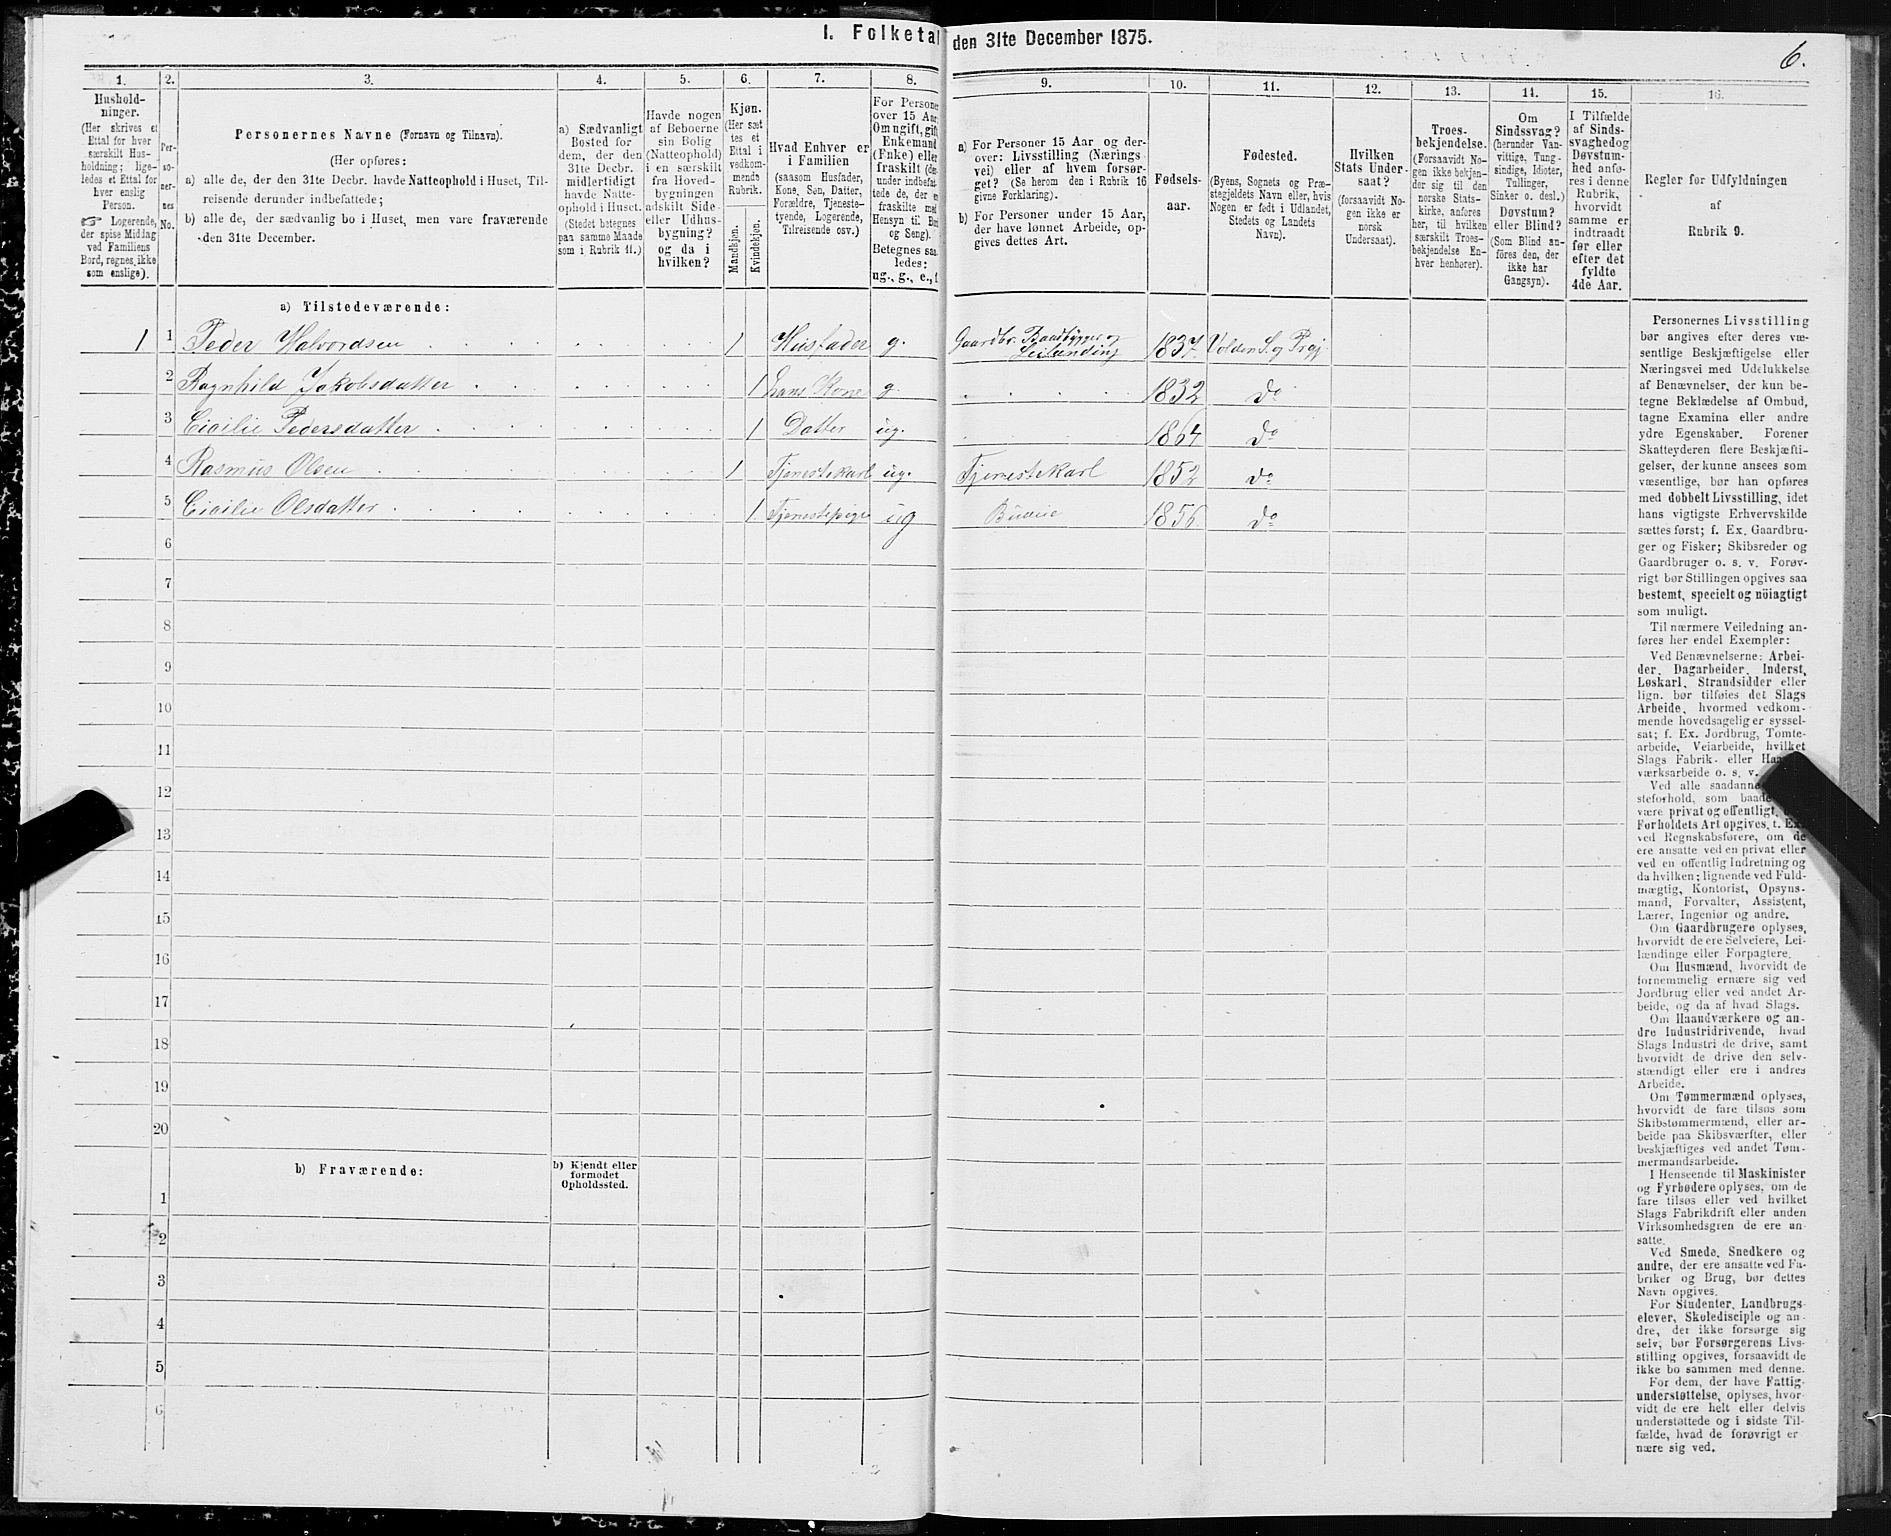 I. Folketal den 31te December 1875.
6.
1.
Hushold-
ninger.
(Her skrives et
Ettal for hver
særskilt Hus-
holdning; lige-
ledes et Ettal for
hver enslig
Person.
☞ Logerende,
der spise Middag
ved Familiens
Bord, regnes ikke
som enslige).
2.
Per-
so-
ner-
nes
No.
3.
Personernes Navne (Fornavn og Tilnavn).
(Her opføres:
a) alle de, der den 31te Decbr. havde Natteophold i Huset, Til-
reisende derunder indbefattede;
b) alle de, der sædvanlig bo i Huset, men vare fraværende
den 31te December.
4.
a) Sædvanligt
Bosted for
dem, der den
31te Decbr.
midlertidigt
havde Natte-
ophold i Huset.
(Stedet betegnes
paa samme Maade
som i Rubrik 11.)
5.
Havde nogen
af Beboerne
sin Bolig
(Natteophold)
i en særskilt
fra Hoved-
bygningen
adskilt Side-
eller Udhus-
bygning?
og da i
hvilken?
6.
Kjøn.
(Her sæt-
tes et
Ettal i
vedkom-
mende
Rubrik.
Mandkjøn.
Kvindekjøn.
7.
Hvad Enhver er
i Familien
(saasom Husfader,
Kone, Søn, Datter,
Forældre, Tjeneste-
tyende, Logerende,
Tilreisende osv.)
8.
For Personer
over 15 Aar:
Om ugift, gift,
Enkemand
(Enke) eller
fraskilt (der-
under indbefat-
tede de, der er
fraskilte med
Hensyn til Bord
og Seng).
Betegnes saa-
ledes:
ug., g., e., f.
9.
a) For Personer 15 Aar og der-
over: Livsstilling (Nærings-
vei) eller af hvem forsør-
get? (Se herom den i Rubrik 16
givne Forklaring).
b) For Personer under 15 Aar,
der have lønnet Arbeide, op-
gives dettes Art.
10.
Fødsels-
aar.
11.
Fødested.
(Byens, Sognets og Præ-
stegjeldets Navn eller, hvis
Nogen er født i Udlandet,
Stedets og Landets
Navn).
12.
Hvilken
Stats Under-
saat?
(forsaavidt No-
gen ikke er
norsk
Undersaat).
13.
Troes-
bekjendelse.
(Forsaavidt No-
gen ikke bekjen-
der sig til den
norske Stats-
kirke, anføres
her, til hvilken
særskilt Troes-
bekjendelse En-
hver henhører).
14.
Om
Sindssvag?
(herunder Van-
vittige, Tung-
sindige, Idioter,
Tullinger,
Sinker o. desl.)
Døvstum?
eller Blind?
(Som Blind an-
føres den, der
ikke har
Gangsyn).
15.
I Tilfælde
af Sinds-
svaghed og
Døvstum-
hed anfø-
res i denne
Rubrik,
hvorvidt
samme er
indtraadt
før eller
efter det
fyldte
4de Aar.
16.
Regler for Udfyldningen
af
Rubrik 9.
a) Tilstedeværende:
1 1 Peder Halvordsen 1 Husfader g. Gaardbr. Baadbygger og Leilænding 1837. Volden S. og Prgj.
2 Ragnhild Jakobsdatter 1 hans Kone g 1832 do
3 Cicilie Pedersdatter 1 Datter ug. 1864 do
4 Rasmus Olsen 1 Tjenestekarl ug. Tjenestekarl 1852 do
5 Cicilie Olsdatter 1 Tjenestepige ug Budeie 1856 do
6
7
8
9
10
11
12
13
14
15
16
17
18
19
20
b) Fraværende:
b) Kjendt eller
formodet
Opholdssted.
1
2
3
4
5
6
Personernes Livsstilling
bør angives efter deres væ-
sentlige Beskjæftigelse eller
Næringsvei med Udelukkelse
af Benævnelser, der kun be-
tegne Beklædelse af Ombud,
tagne Examina eller andre
ydre Egenskaber. Forener
Skatteyderen flere Beskjæfti-
gelser, der kunne ansees som
væsentlige, bør han opføres
med dobbelt Livsstilling, idet
hans vigtigste Erhvervskilde
sættes først; f. Ex. Gaardbru-
ger og Fisker; Skibsreder og
Gaardbruger o. s. v. Forøv-
rigt bør Stillingen opgives saa
bestemt, specielt og nöiagtigt
som muligt.
Til nærmere Veiledning an-
føres her endel Exempler:
Ved Benævnelserne: Arbei-
der, Dagarbeider, Inderst,
Løskarl, Strandsidder eller
lign. bør tilføies det Slags
Arbeide, hvormed vedkom-
mende hovedsagelig er syssel-
sat; f. Ex. Jordbrug, Tomte-
arbeide, Veiarbeide, hvilket
Slags Fabrik- eller Haand-
værksarbeide o. s. v.
Ved alle saadanne
steforhold, som baade
være privat og offentligt,
Forholdets Art opgives, t. Ex.
ved Regnskabsførere, om de
ere ansatte ved en privat eller
ved en offentlig Indretning og
da hvilken; lignende ved Fuld-
mægtig, Kontorist, Opsyns-
mand, Forvalter, Assistent,
Lærer, Ingeniør og andre.
Om Gaardbrugere oplyses,
hvorvidt de ere Selveiere, Lei-
lændinge eller Forpagtere.
Om Husmænd, hvorvidt de
fornemmelig ernære sig ved
Jordbrug eller ved andet Ar-
beide, og da af hvad Slags.
Om Haandværkere og an-
dre Industridrivende, hvad
Slags Industri de drive, samt
hvorvidt de drive den selv-
stændigt eller ere i andres
Arbeide.
Om Tømmermænd oplyses,
hvorvidt de fare tilsøs som
Skibstømmermænd, eller ar-
beide paa Skibsværfter, eller
beskjæftiges ved andet Tøm-
mermandsarbeide.
I Henseende til Maskinister
og Fyrbødere oplyses, om de
fare tilsøs eller ved hvilket
Slags Fabrikdrift eller anden
Virksomhedsgren de ere an-
satte.
Ved Smede, Snedkere og
andre, der ere ansatte ved Fa-
briker og Brug, bør dettes
Navn opgives.
For Studenter, Landbrugs-
elever, Skoledisciple og an-
dre, der ikke forsørge sig
selv, bør Forsørgerens Livs-
stilling opgives, forsaavidt de
ikke bo sammen med denne.
For dem, der have Fattig-
understøttelse, oplyses, hvor-
vidt de ere helt eller delvis
understøttede og i sidste Til-
fælde, hvad de forøvrigt er-
nære sig ved.